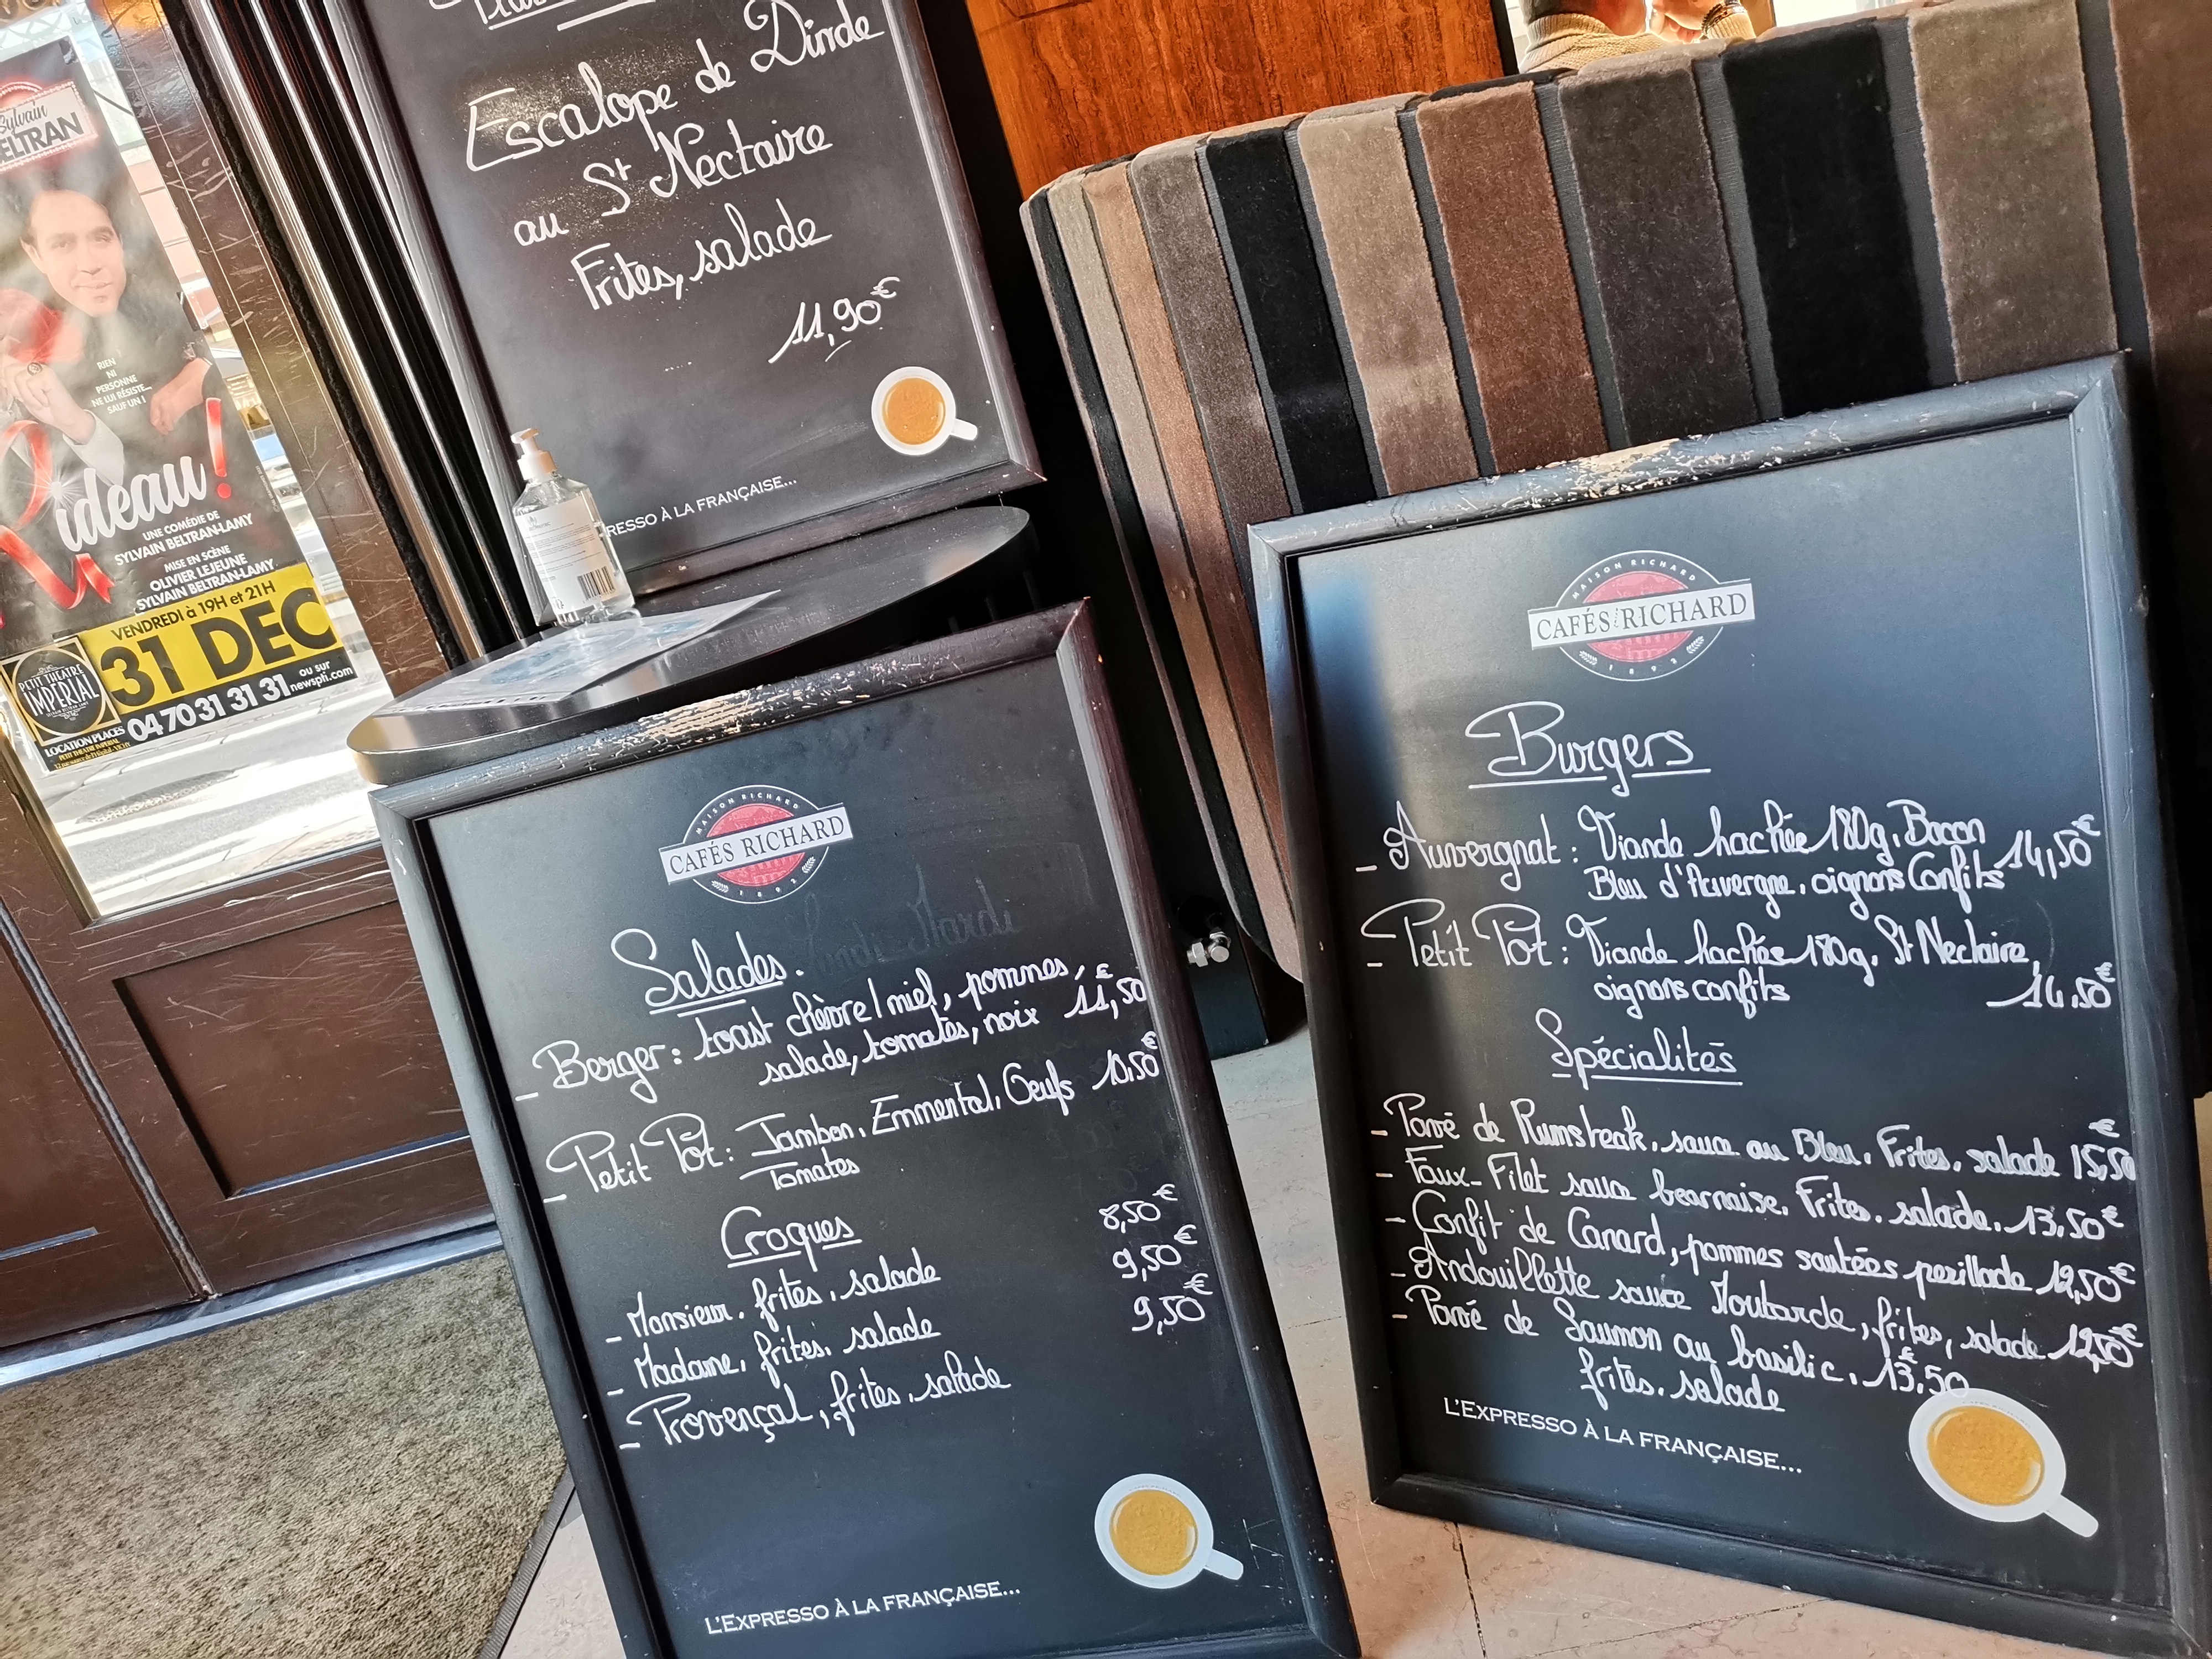 Sylvain
BELTRAN
RIEN
NI
PERSONNE
NE LUI RÉSISTE...
SAUF UN !
Rideau!
UNE COMÉDIE DE
SYLVAIN BELTRAN-LAMY
MISE EN SCÈNE
OLIVIER LEJEUNE
SYLVAIN BELTRAN-LAMY
VENDREDI à 19H et 21H
31 DEC
PETIT THEATRE
IMPERIAL
LOCATION PLACES
04 70 31 31 31
ou sur
newspti.com
Escalope de Dinde
au St Nectaire
Frites, salade
11,90€
RESSO À LA FRANÇAISE...
MAISON RICHARD
CAFÉS RICHARD
1892
Salades.
- Berger: toast chèvre/miel, pommes,
salade, tomates, noix 11,50€
- Petit Pot: Jambon, Emmental, Oeufs 10,50€
Tomates
Croques
- Monsieur, frites, salade 8,50€
- Madame, frites, salade 9,50€
- Provençal, frites, salade 9,50€
L'EXPRESSO À LA FRANÇAISE...
MAISON RICHARD
CAFÉS RICHARD
1892
Burgers
- Auvergnat: Viande hachée 180g, Bacon
Bleu d'Auvergne, oignons Confits 14,50€
- Petit Pot: Viande hachée 180g, St Nectaire,
oignons confits 14.50€
Spécialités
- Pavé de Rumsteak, sauce au Bleu, Frites, salade 15,50€
- Faux-Filet sauce bearnaise, Frites, salade. 13,50€
- Confit de Canard, pommes sautées persillade 12,50€
- Andouillette sauce Moutarde, frites, salade 12,50€
- Pavé de Saumon au basilic, 13,50€
frites, salade
L'EXPRESSO À LA FRANÇAISE...